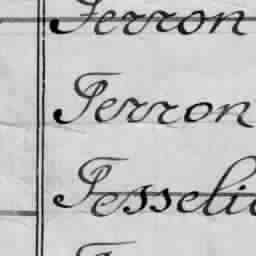 Ferron
Perron
Pesseli